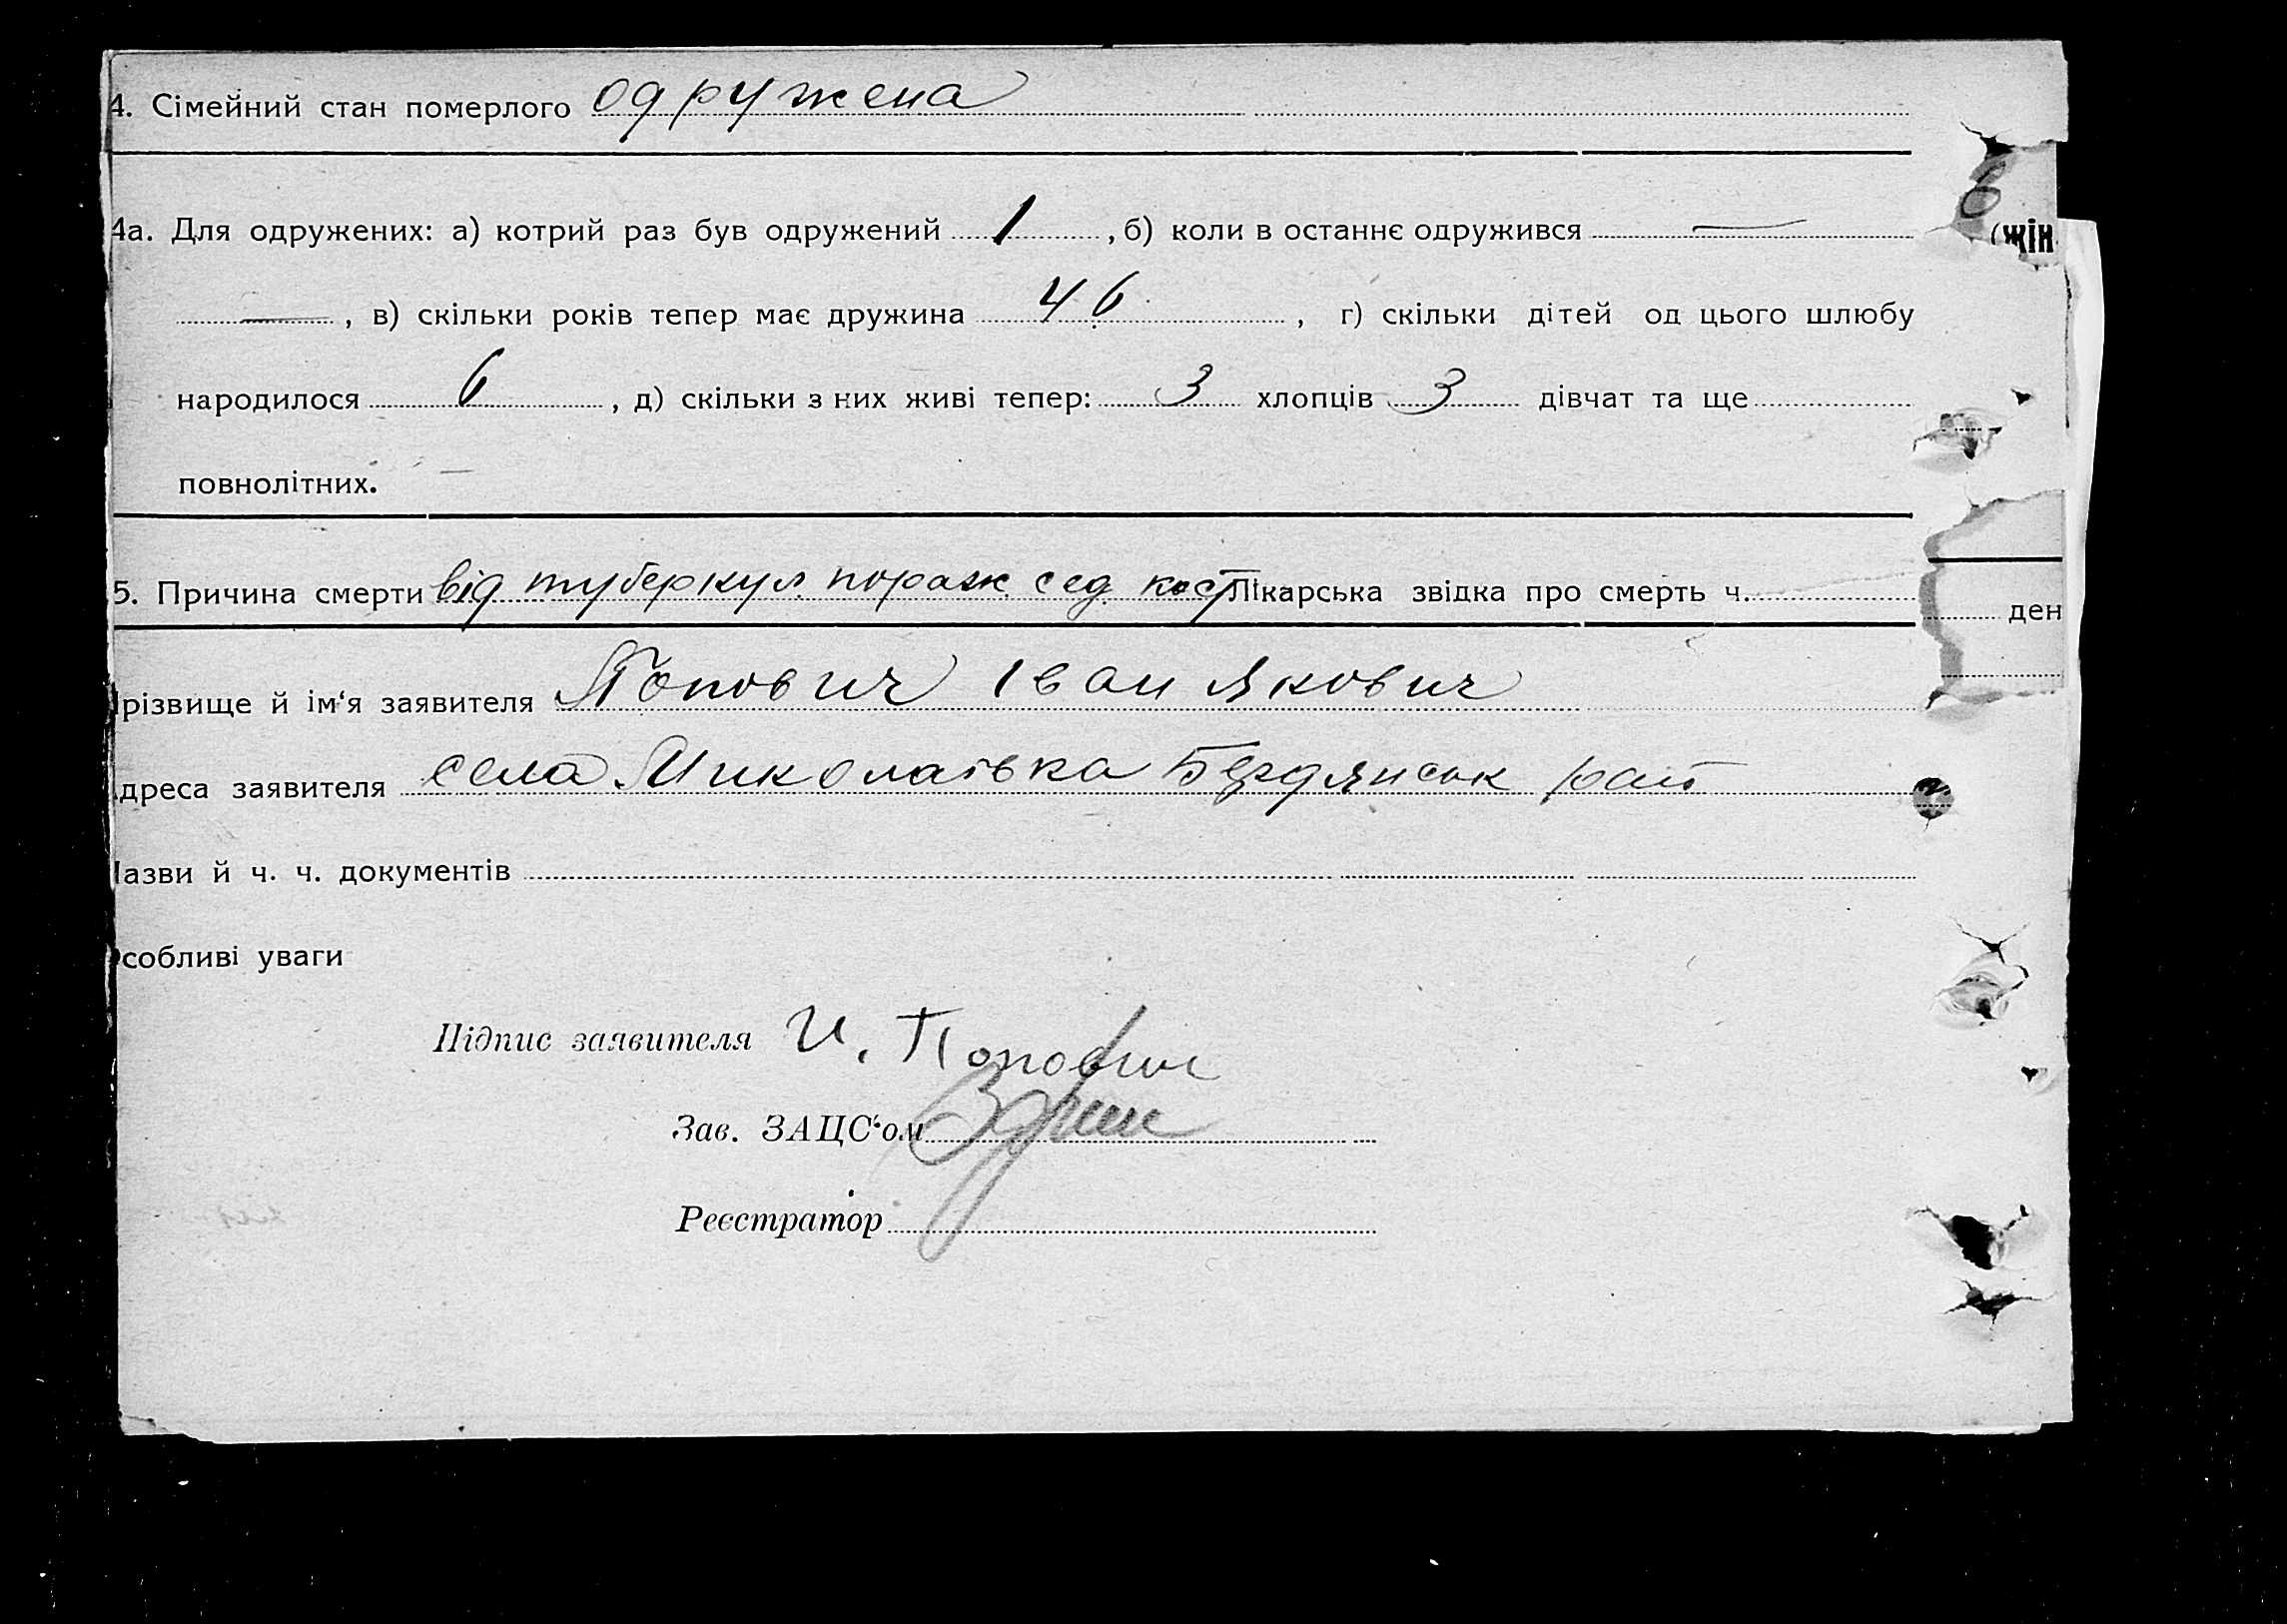 4. Сімейний стан померлого одружена
4а. Для одружених: а) котрий раз був одружений 1, б) коли в останнє одружився —
—, в) скільки років тепер має дружина 46, г) скільки дітей од цього шлюбу
народилося 6, д) скільки з них живі тепер: 3 хлопців 3 дівчат та ще
повнолітних. —
5. Причина смерти від туберкул. пораж. сед. кост Лікарська звідка про смерть ч.
різвище й ім‘я заявителя Попович Іван Якович
дреса заявителя села Миколаївка Бердянськ рай
азви й ч. ч. документів
собливі уваги
Підпис заявителя И. Попович
Зав. ЗАЦС‘ом
Реєстратор
6
(жін
ден